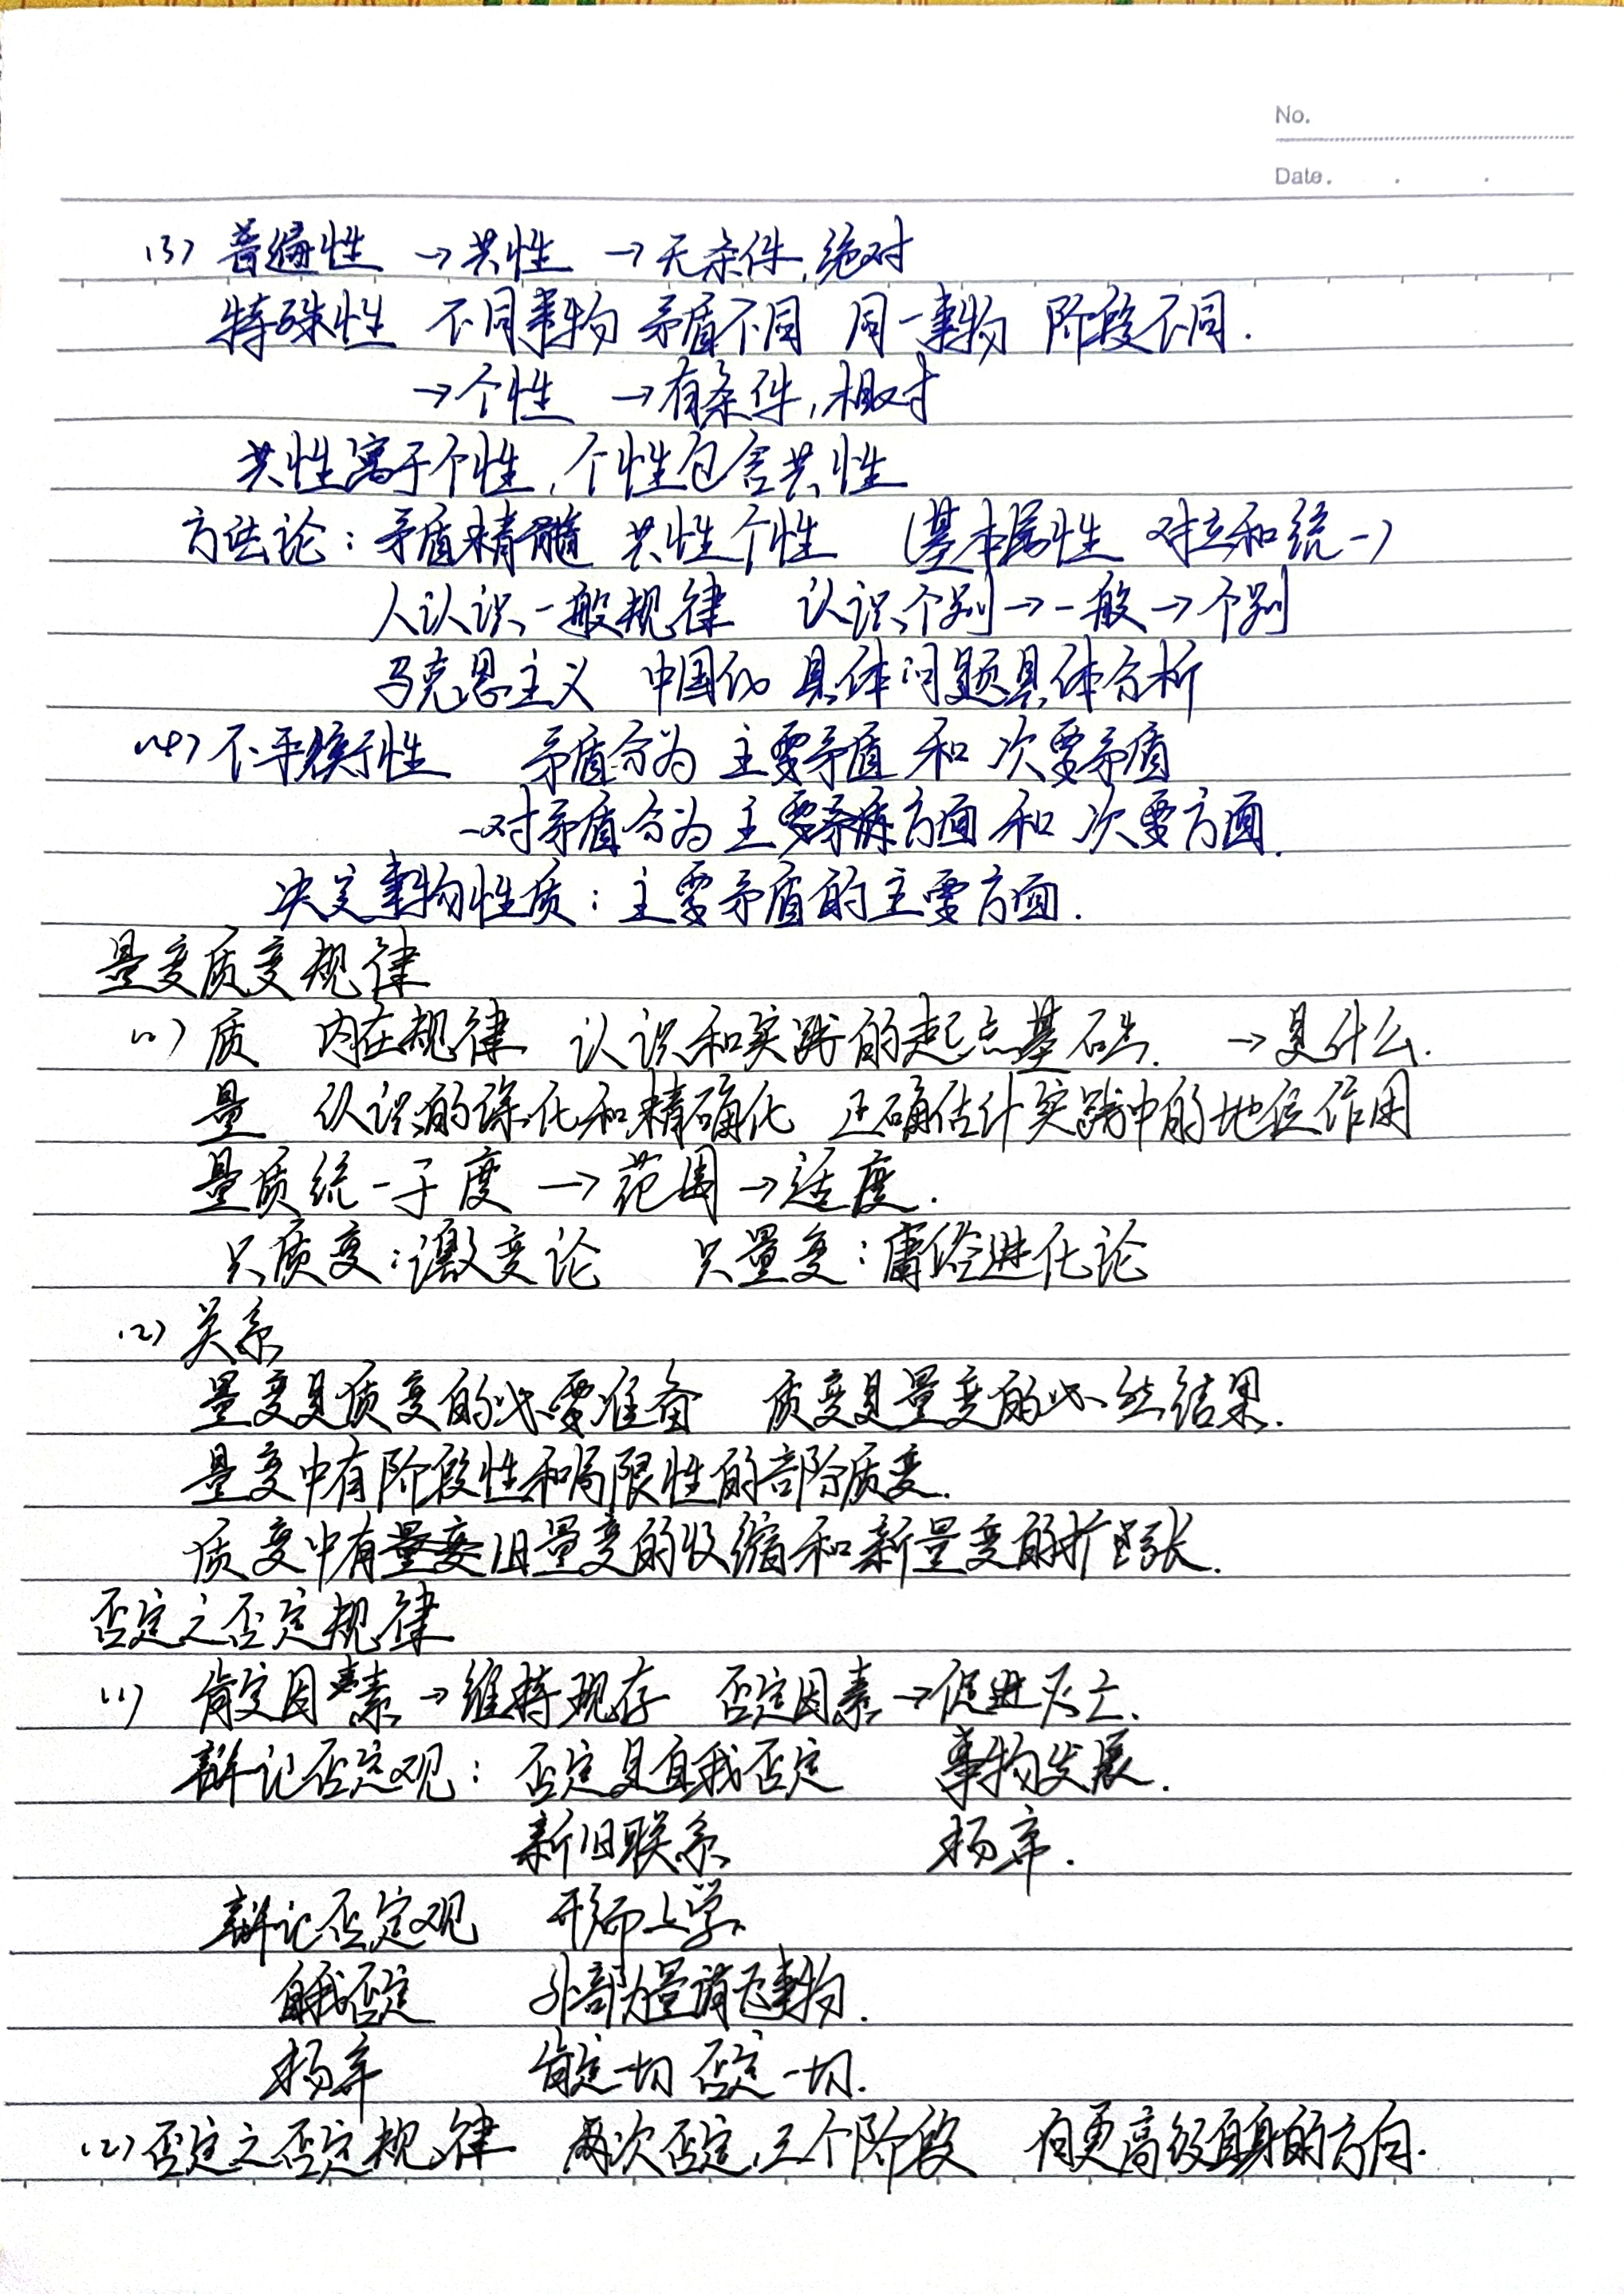 No.
Date.
(3) 普遍性 →共性 →无条件,绝对
特殊性 不同事物 矛盾不同 同一事物 阶段不同.
→个性 →有条件,相对
共性寓于个性,个性包含共性
方法论: 矛盾精髓 共性个性 (基本属性 对立和统一)
人认识一般规律 认识个别→一般→个别
马克思主义 中国化 具体问题具体分析
(4) 不平衡性 矛盾分为 主要矛盾 和 次要矛盾
一对矛盾分为 主要方面 和 次要方面.
决定事物性质: 主要矛盾的主要方面.
量变质变规律
(1) 质 内在规律 认识和实践的起点基础. →是什么.
量 认识的深化和精确化 正确估计实践中的地位作用
量质统一于度 →范围→适度.
只质变:激变论 只量变:庸俗进化论
(2) 关系
量变是质变的必要准备 质变是量变的必然结果.
量变中有阶段性和局限性的部分质变.
质变中有旧量变的收缩和新量变的扩张.
否定之否定规律
(1) 肯定因素→维持现存 否定因素→促进灭亡.
辩记否定观: 否定是自我否定 事物发展.
新旧联系 杨弃.
辩记否定观 形而上学
自我否定 外部力量消灭事物.
杨弃 肯定一切 否定一切.
(2) 否定之否定规律 两次否定,三个阶段 向更高级自身的方向.